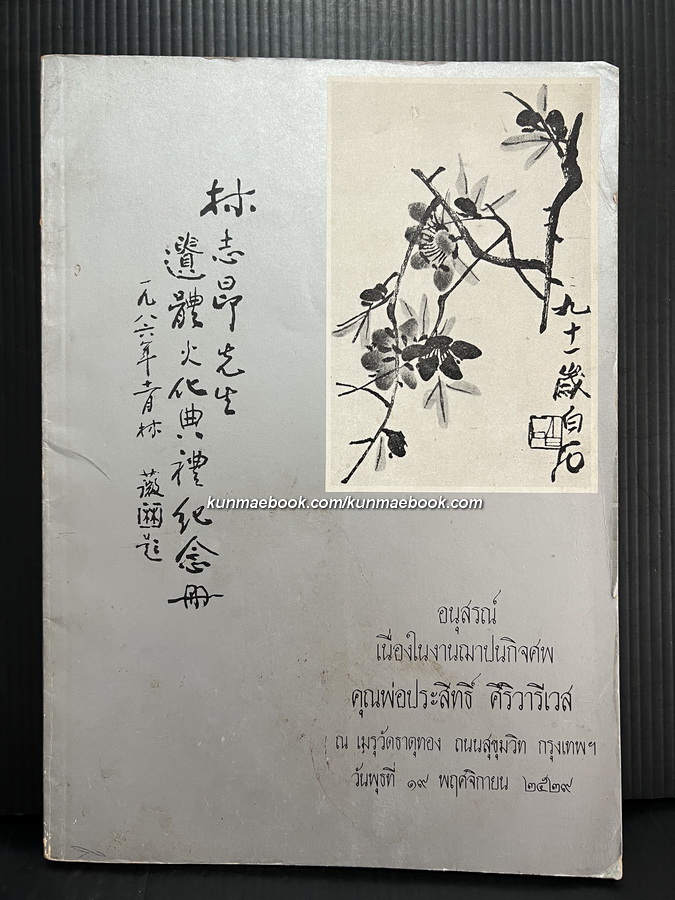 林志昂先生
遺體火化典禮紀念冊
一九八六年十一月林薇題
九十一歲白石
kunmaebook.com/kunmaebook.com
อนุสรณ์
เนื่องในงานฌาปนกิจศพ
คุณพ่อประสิทธิ์ ศิริวารีเวส
ณ เมรุวัดธาตุทอง ถนนสุขุมวิท กรุงเทพฯ
วันพุธที่ ๑๙ พฤศจิกายน ๒๕๒๙